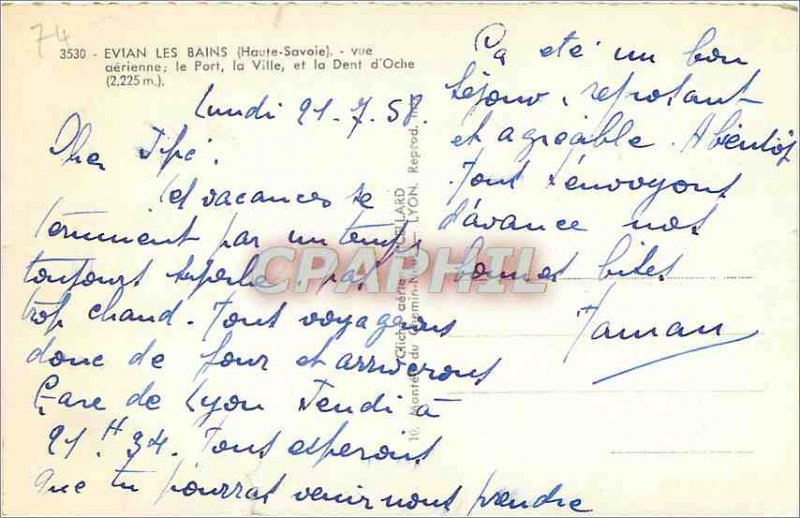 74
3530 - EVIAN LES BAINS (Haute-Savoie). - vue
aérienne; le Port, la Ville, et la Dent d'Oche
(2,225 m.).
Lundi 21.7.58.
Cher
les vacances se
terminent par un temps
toujours superbe. pas
trop chaud. Nous voyageons
donc de jour et arriverons
Gare de Lyon Jendi à
21 H 34. Nous esperons
que tu pourras venir nous prendre
Ça eté un bon
séjour, reposant
et agréable. A bientôt
Nous t'envoyons
d'avance nos
bonnes bises
Maman
Cliché aérien CELLARD
10, Montée du Chemin-Neuf - LYON. Reprod. Int.
CPAPHIL